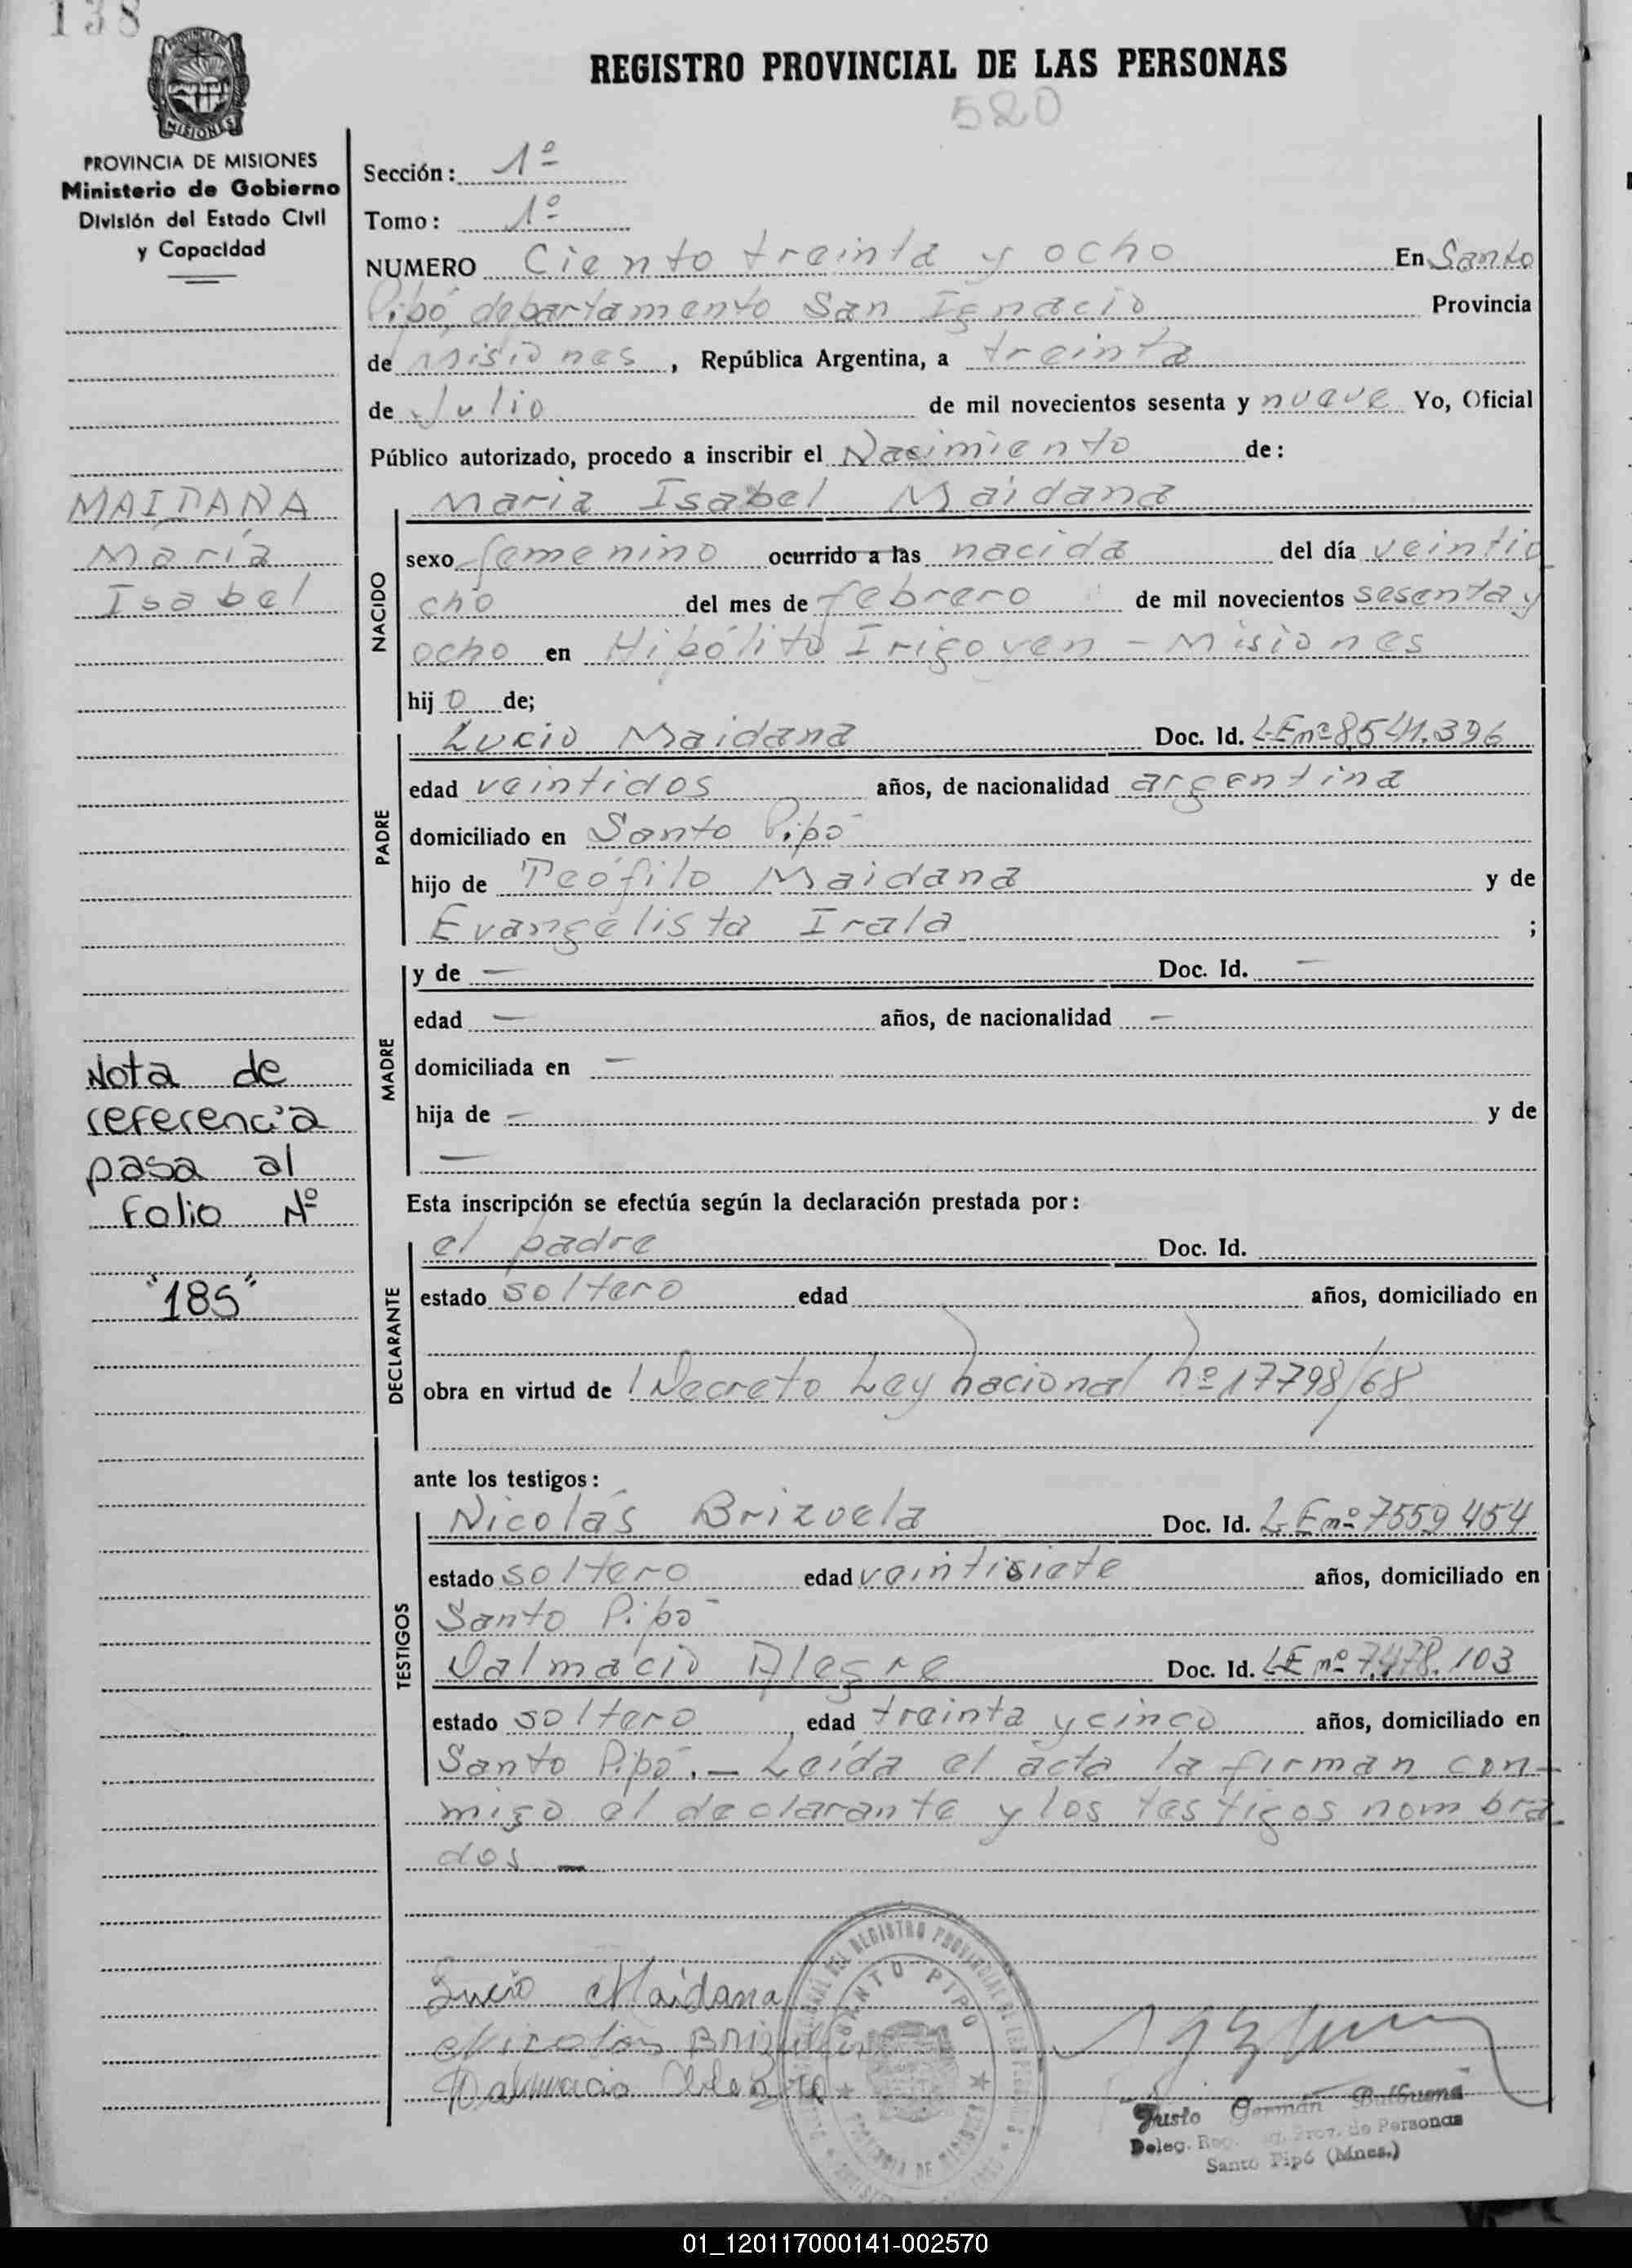 138
REGISTRO PROVINCIAL DE LAS PERSONAS
520
MISIONES
PROVINCIA DE MISIONES
Ministerio de Gobierno
División del Estado Civil
y Capacidad
Sección: 1º
Tomo: 1º
NUMERO Ciento treinta y ocho En Santo
Pipó, departamento San Ignacio Provincia
de Misiones, República Argentina, a treinta
de Julio de mil novecientos sesenta y nueve Yo, Oficial
Público autorizado, procedo a inscribir el Nacimiento de:
MAIDANA
María
Isabel
NACIDO
Maria Isabel Maidana
sexo femenino ocurrido a las nacida del día veintio
cho del mes de febrero de mil novecientos sesenta y
ocho en Hipólito Irigoyen - Misiones
hijo de;
PADRE
Lucio Maidana Doc. Id. LE nº 8.541.396
edad veintidos años, de nacionalidad argentina
domiciliado en Santo Pipó
hijo de Teófilo Maidana y de
Evangelista Irala ;
MADRE
y de — Doc. Id. —
edad — años, de nacionalidad —
domiciliada en —
hija de — y de
—
Nota de
referencia
pasa al
Folio Nº
"185"
Esta inscripción se efectúa según la declaración prestada por:
DECLARANTE
el padre Doc. Id.
estado soltero edad años, domiciliado en
obra en virtud de l Decreto Ley nacional nº 17798/68
ante los testigos:
TESTIGOS
Nicolás Brizuela Doc. Id. LE nº 7559454
estado soltero edad veintisiete años, domiciliado en
Santo Pipó
Dalmacio Alegre Doc. Id. LE nº 7.478.103
estado soltero, edad treinta y cinco años, domiciliado en
Santo Pipó. — Leída el acta la firman con-
migo el declarante y los testigos nombra
dos —
Lucio Maidana
Nicolás Brizuela
Dalmacio Alegre
REGISTRO PROVINCIAL DE LAS
SANTO PIPO
PROVINCIA DE MISIONES
Justo Germán Balbuena
Deleg. Reg. Prov. de Personas
Santo Pipó (Mnes.)
01_120117000141-002570